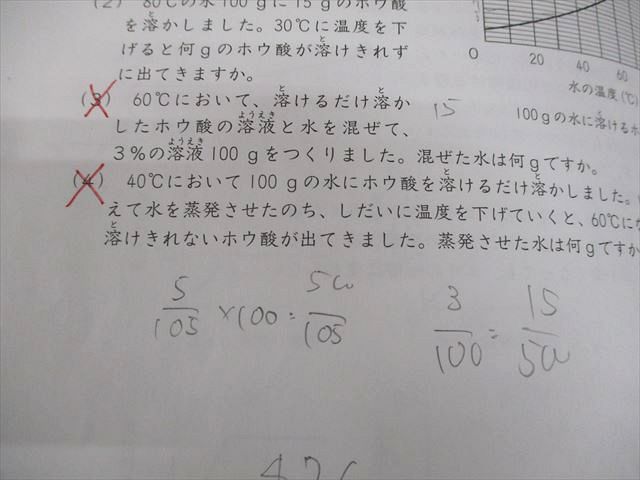 (2) 80℃の水100gに15gのホウ酸
を溶かしました。30℃に温度を下
げると何gのホウ酸が溶けきれず
に出てきますか。
(3) 60℃において、溶けるだけ溶か
したホウ酸の溶液と水を混ぜて、
3%の溶液100gをつくりました。混ぜた水は何gですか。
(4) 40℃において100gの水にホウ酸を溶けるだけ溶かしました。
えて水を蒸発させたのち、しだいに温度を下げていくと、60℃にな
溶けきれないホウ酸が出てきました。蒸発させた水は何gですか
0 20 40 60
水の温度(℃)
100gの水に溶けるホ
15
5/105 ×100 = 500/105
3/100 = 15/500